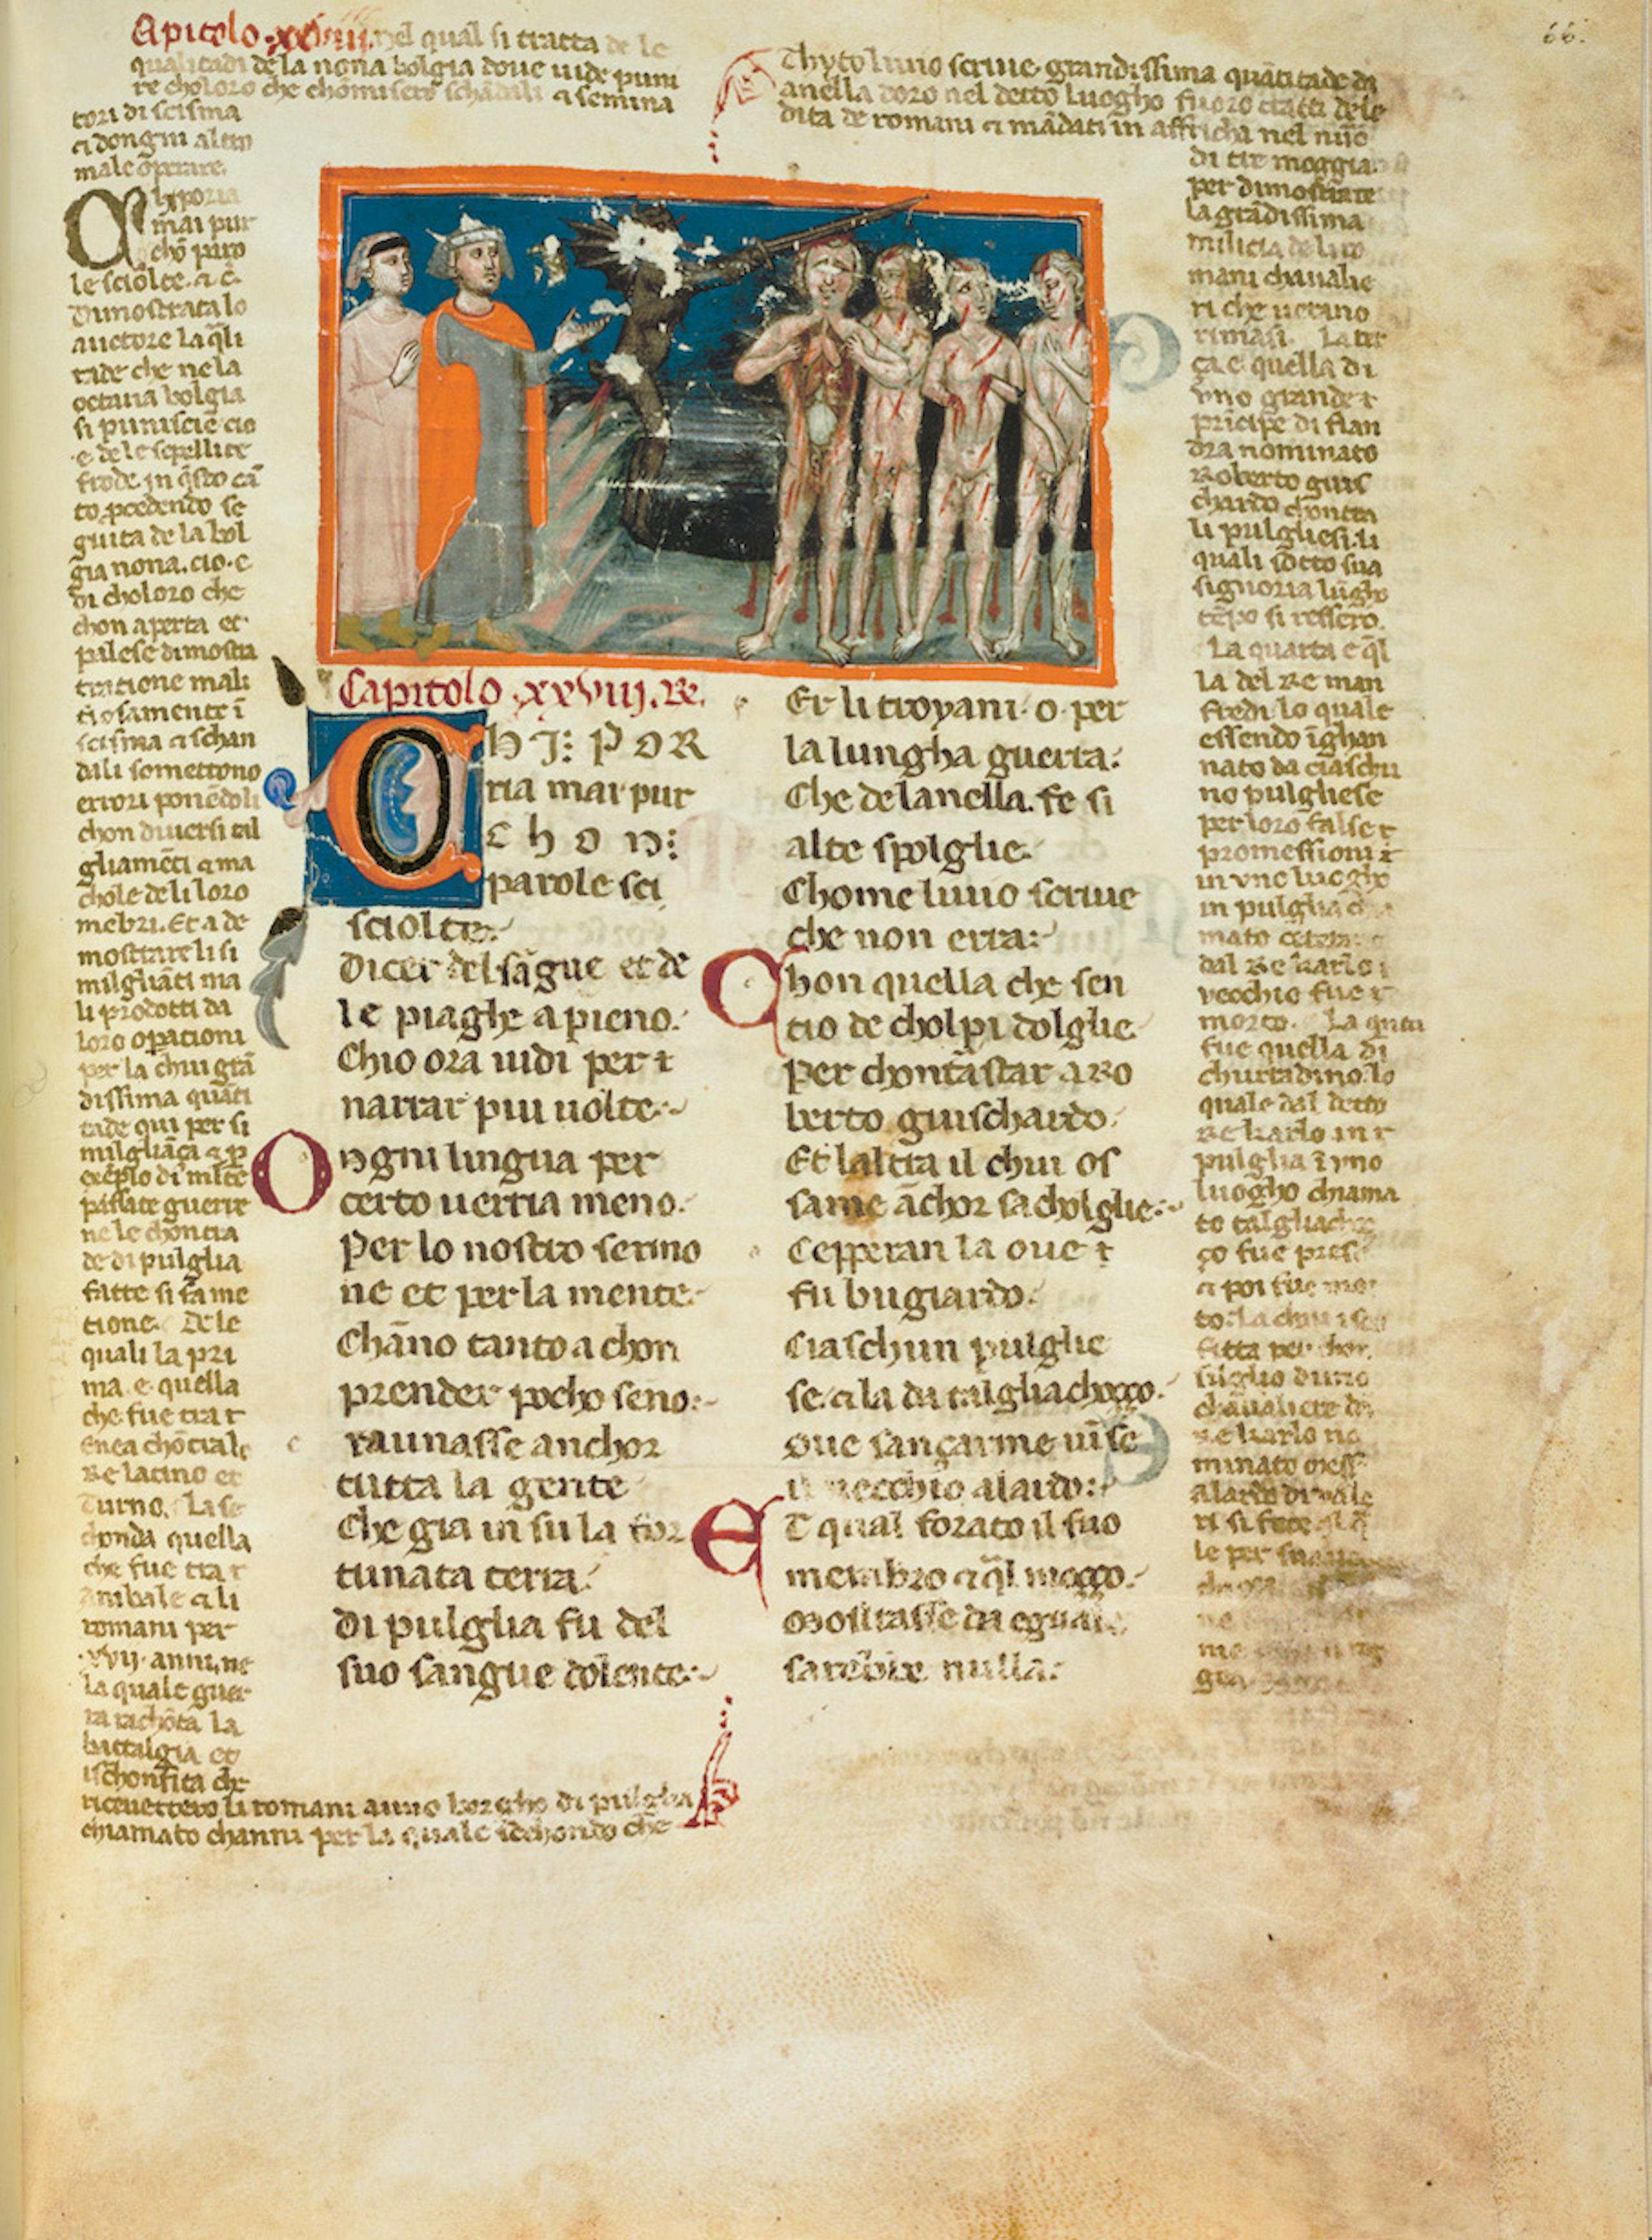 Capitolo .xxviij. nel qual si tracta de le
qualitadi de la nona bolgia doue uide puni
re choloro che chomisero schādali ⁊ semina
tori di scisma
⁊ dongni altro
male operare.
hi poria
mai pur
chō paro
le sciolte. ⁊ c̄.
Dimostrata lo
auctore la q̄li
tade che ne la
octaua bolgia
si puniscie cio
e de le sepellite
frode. in q̄sto cā
to p̲cedendo se
guita de la bol
gia nona. cio. e
di choloro che
chon aperta et
palese dimostra
tratione mali
tiosamente ī
scisma ⁊ schan
dali somettono
errori ponēdoli
chon diuersi tal
gliamēti ⁊ ma
chole de li loro
mēbri. Et a de
mostrare li si
milgliāti ma
li prodotti da
loro op̲ationi
per la chui grā
dissima quāti
tade qui per si
milgliāça ⁊ p̲
exēplo di molte
passate guerre
ne le chōntra
de di pulglia
fatte si fa me
tione. De le
quali la pri
ma. e. quella
che fue tra t
Enea chō tra lo
Re latino et
Turno. La se
chonda quella
che fue tra t
anibale ⁊ li
romani per
.xvij. anni. ne
la quale guer
ra rachōta la
battalgia et
ischonfita che
riceuettero li romani a uno borgho di pulglia
chiamato channi per la quale sechondo che
Thyto liuio scriue grandissima quātitade di
anella doro nel detto luogho fuoro tratti dele
dita de romani ⁊ mādati in affricha nel nūo
di tre moggia
per dimostrare
la grādissima
milicia de li ro
mani chaualie
ri che uerano
rimasi. La ter
ça. e. quella di
vno grande t
prīcipe di fian
dra nominato
Roberto guis
chardo chontra
li pulgliesi. li
quali sotto sua
signoria lūgho
tēpo si ressero.
La quarta e q̄l
la del Re man
fredi. lo quale
essendo īghan
nato da ciaschu
no pulgliese
per loro false t
promessioni t
in vno luogho
in pulglia
mato
dal Re karlo
vecchio fue t
morto. La quīta
fue quella di
churradino. lo
quale dal detto
Re karlo in t
pulglia ī vno
luogho chiama
to talgliachoc
ço fue preso
⁊ poi fue mor
to. la chui iscō
fitta per chon
silglio duno
chaualiere di
Re karlo no
minato mess̄
alardo di uale
ri si fece
le per
Capitolo .xxviij. Re.
CHI: POR
ria mai pur
chon:
parole sci
sciolte:
Dicer del sāgue et de
le piaghe a pieno.
Chio ora uidi per t
narrar piu uolte:
Ongni lingua per
certo uerria meno.
Per lo nostro sermo
ne et per la mente.
Chāno tanto a chon
prender pocho seno:
raunasse anchor
tutta la gente
Che gia in su la for
tunata terra.
Di pulglia fu del
suo sangue dolente:
Er li troyani. o. per
la lungha guerra:
Che de lanella. fe si
alte spolglie.
Chome liuio scriue
che non erra:
Chon quella che sen
tio de cholpi dolglie
Per chontāstar a Ro
berto guischardo.
Et laltra il chui os
same āchor sacholglie:
Cepperan la oue t
fu bugiardo.
Ciaschun pulglie
se. ⁊ la da talgliachoço.
Oue sançarme uīse
il uecchio alardo:
Et qual forato il suo
membro ⁊ q̄l moço.
Mostrasse da eguali
sarebbe nulla:
66.